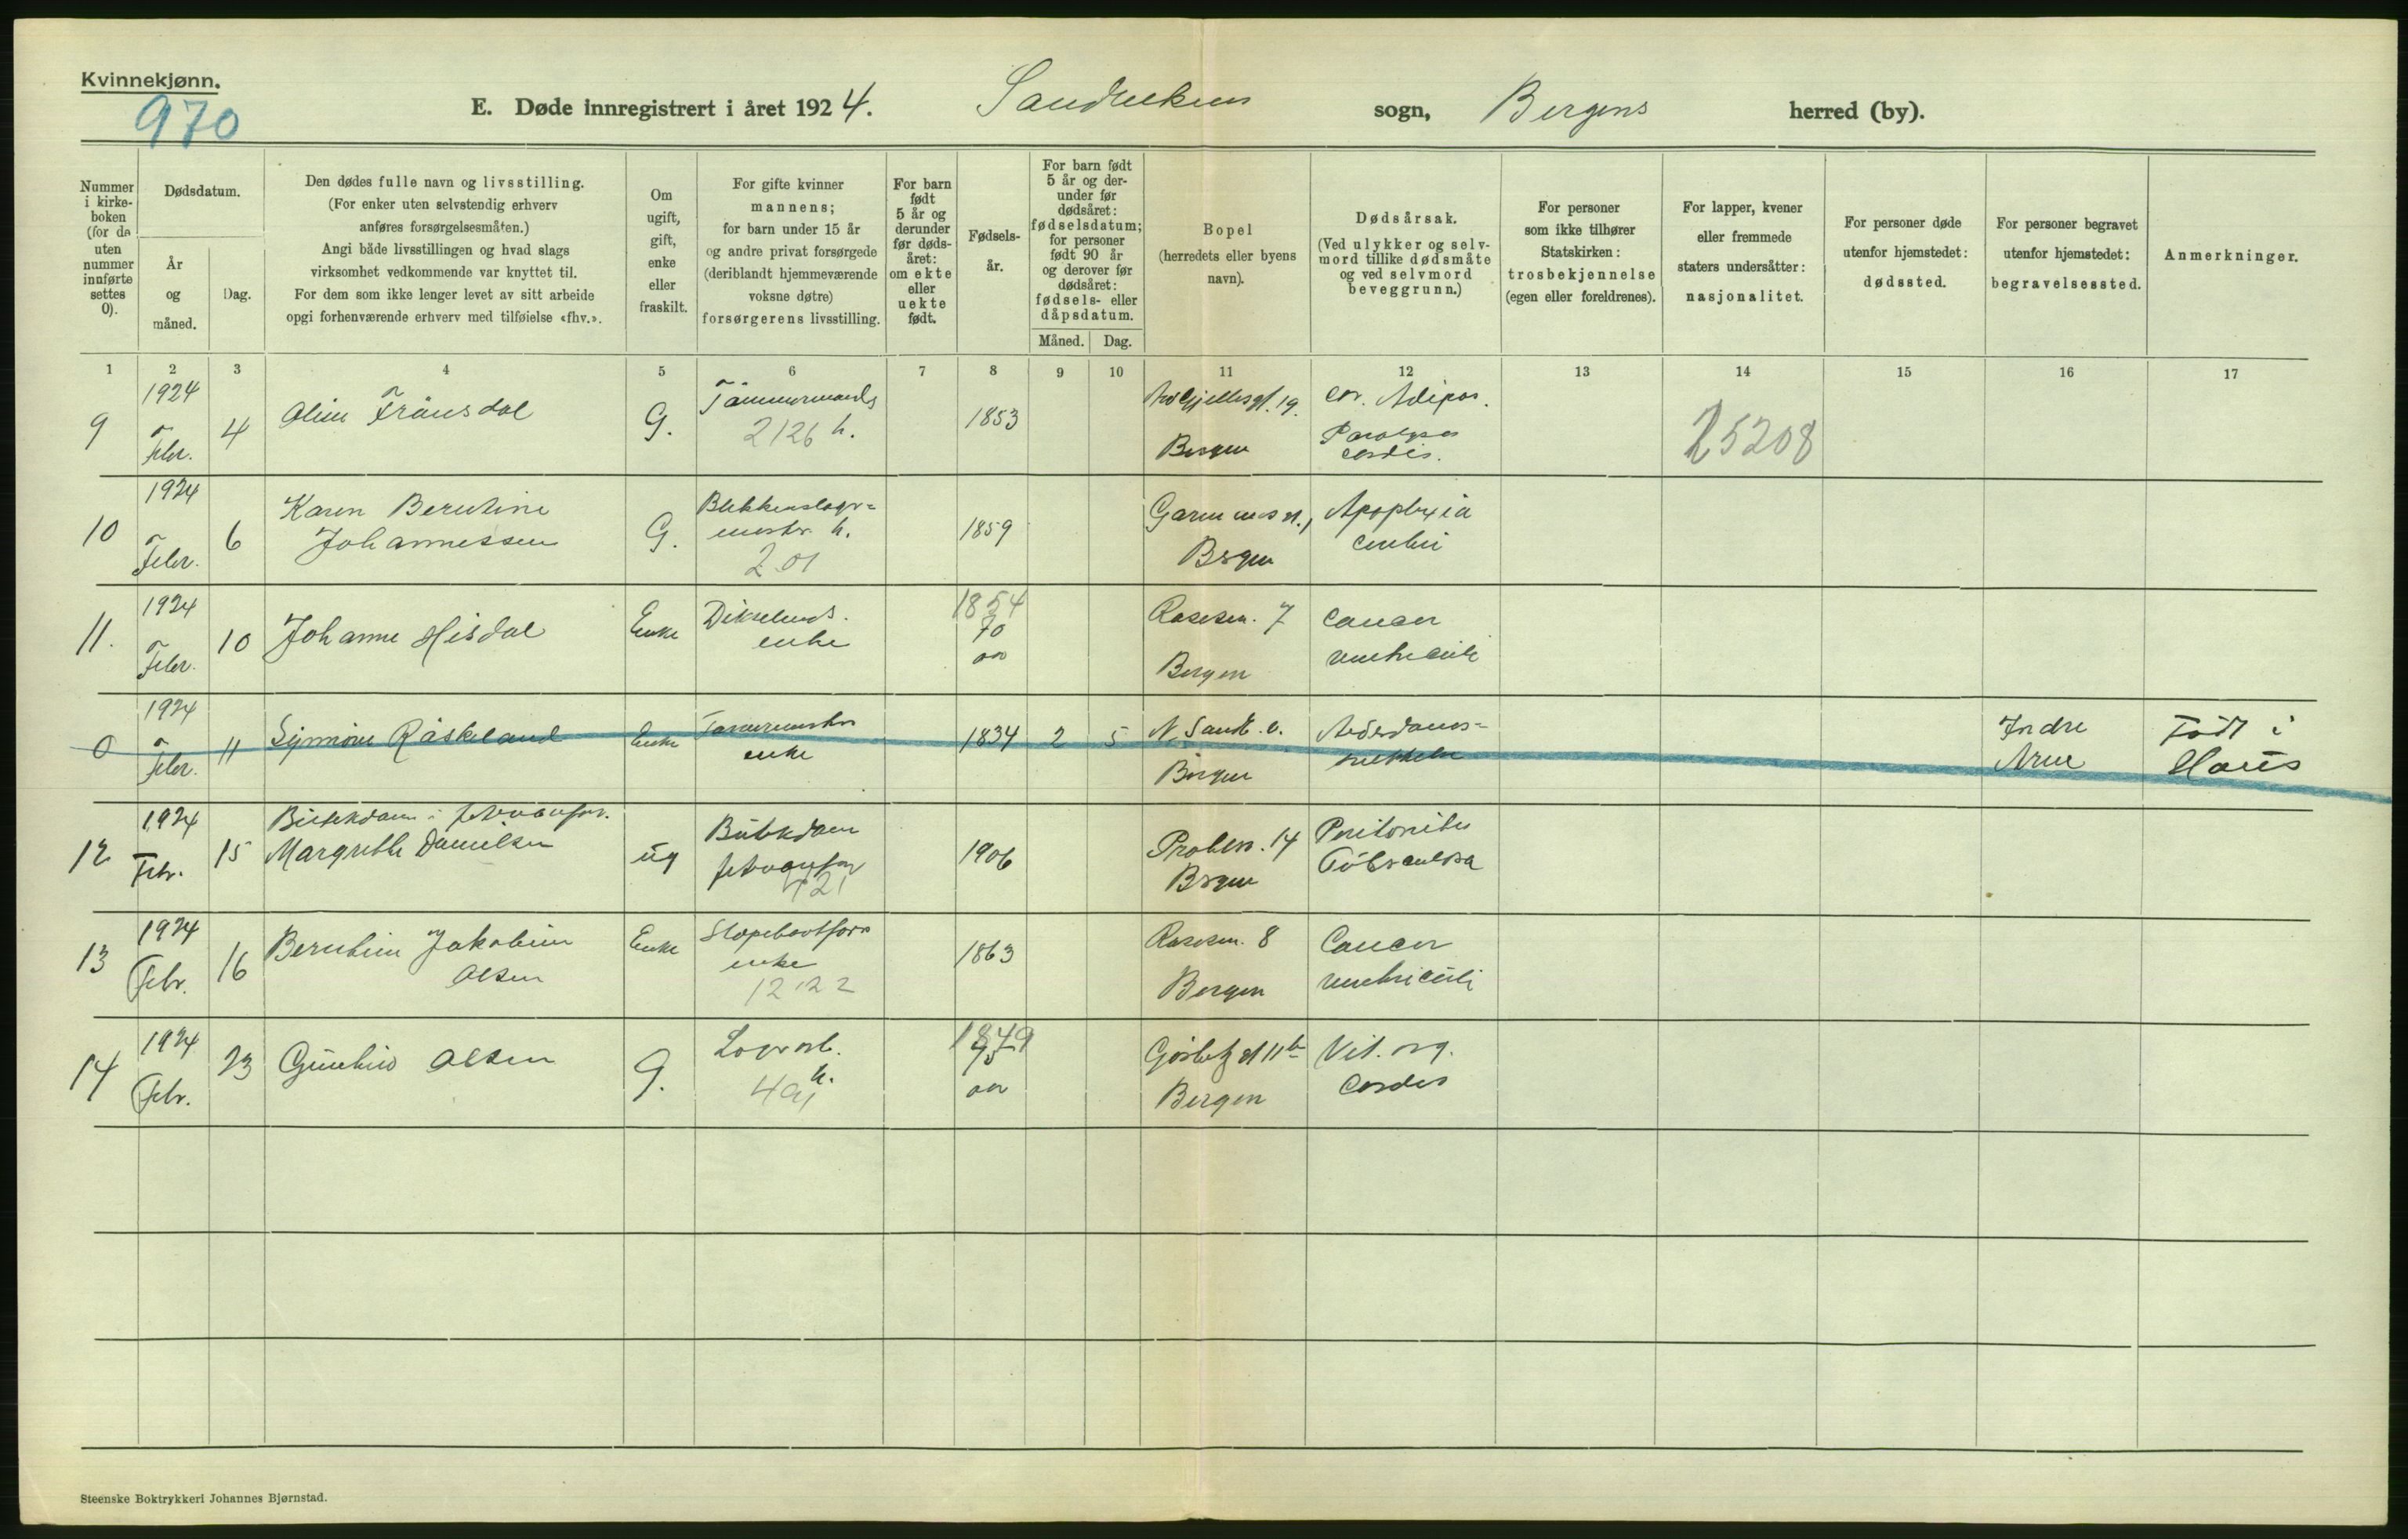 Kvinnekjønn.
970
E. Døde innregistrert i året 1924. Sandvikens sogn, Bergens herred (by).
Nummer i kirke-boken (for de uten nummer innførte settes 0).
Dødsdatum.
År og måned.
Dag.
Den dødes fulle navn og livsstilling.
(For enker uten selvstendig erhverv
anføres forsørgelsesmåten.)
Angi både livsstillingen og hvad slags
virksomhet vedkommende var knyttet til.
For dem som ikke lenger levet av sitt arbeide
opgi forhenværende erhverv med tilføielse «fhv.».
Om ugift, gift, enke eller fraskilt.
For gifte kvinner
mannens;
for barn under 15 år
og andre privat forsørgede
(deriblandt hjemmeværende
voksne døtre)
forsørgerens livsstilling.
For barn født 5 år og derunder før døds-året: om ekte eller uekte født.
Fødsels-år.
For barn født
5 år og der-
under før
dødsåret:
fødselsdatum;
for personer
født 90 år
og derover før
dødsåret:
fødsels- eller
dåpsdatum.
Måned. Dag.
Bopel
(herredets eller byens
navn).
Dødsårsak.
(Ved ulykker og selv-
mord tillike dødsmåte
og ved selvmord
beveggrunn.)
For personer
som ikke tilhører
Statskirken:
trosbekjennelse
(egen eller foreldrenes).
For lapper, kvener
eller fremmede
staters undersåtter:
nasjonalitet.
For personer døde
utenfor hjemstedet:
dødssted.
For personer begravet
utenfor hjemstedet:
begravelsessted.
Anmerkninger.
1 2 3 4 5 6 7 8 9 10 11 12 13 14 15 16 17
9 1924 Febr. 4 G. 2126 h. 1853 19. Bergen Cor. Adipos. cordis. 25208
10 1924 Febr. 6 Karen Berntine
Johannessen G. h. 201 1859 Bergen Apoplexia
cerebri
11. 1924 Febr. 10 Johanne Hisdal Enke enke 1854 70 aar 7 Bergen Cancer
ventriculi
0 1924 Febr. 11 Råskeland Enke enke 1834 2 5 Bergen Indre
Arne Født i
Haus
12 1924 Febr. 15 Margrethe Danielsen ug 421 1906 14 Bergen Peritonitis
Tuberculosa
13 1924 Febr. 16 Jakobine
Olsen Enke enke 1222 1863 8 Bergen Cancer
ventriculi
14 1924 Febr. 23 Olsen G. h. 491 1849 75 aar Bergen Vit. org.
Cordis
Steenske Boktrykkeri Johannes Bjørnstad.